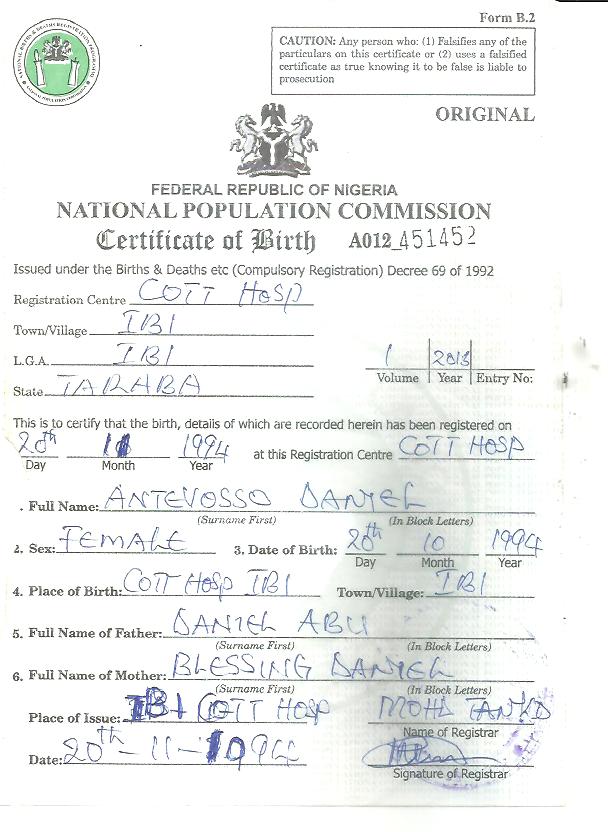 Form B.2
CAUTION: Any person who: (1) Falsifies any of the
particulars on this certificate or (2) uses a falsified
certificate as true knowing it to be false is liable to
prosecution
ORIGINAL
FEDERAL REPUBLIC OF NIGERIA
NATIONAL POPULATION COMMISSION
Certificate of Birth A012 451452
Issued under the Births & Deaths etc (Compulsory Registration) Decree 69 of 1992
Registration Centre COTT HOSP
Town/Village IBI
L.G.A. IBI
1 2013
Volume Year Entry No:
State TARABA
This is to certify that the birth, details of which are recorded herein has been registered on
20th 11 1994 at this Registration Centre COTT HOSP
Day Month Year
. Full Name: ANTEVOSSO DANIEL
(Surname First) (In Block Letters)
2. Sex: FEMALE 3. Date of Birth: 20th 10 1994
Day Month Year
4. Place of Birth: COTT HOSP IBI Town/Village: IBI
5. Full Name of Father: DANIEL ABU
(Surname First) (In Block Letters)
6. Full Name of Mother: BLESSING DANIEL
(Surname First) (In Block Letters)
Place of Issue: IBI COTT HOSP MOHD
Name of Registrar
Date: 20th-11-1994
Signature of Registrar